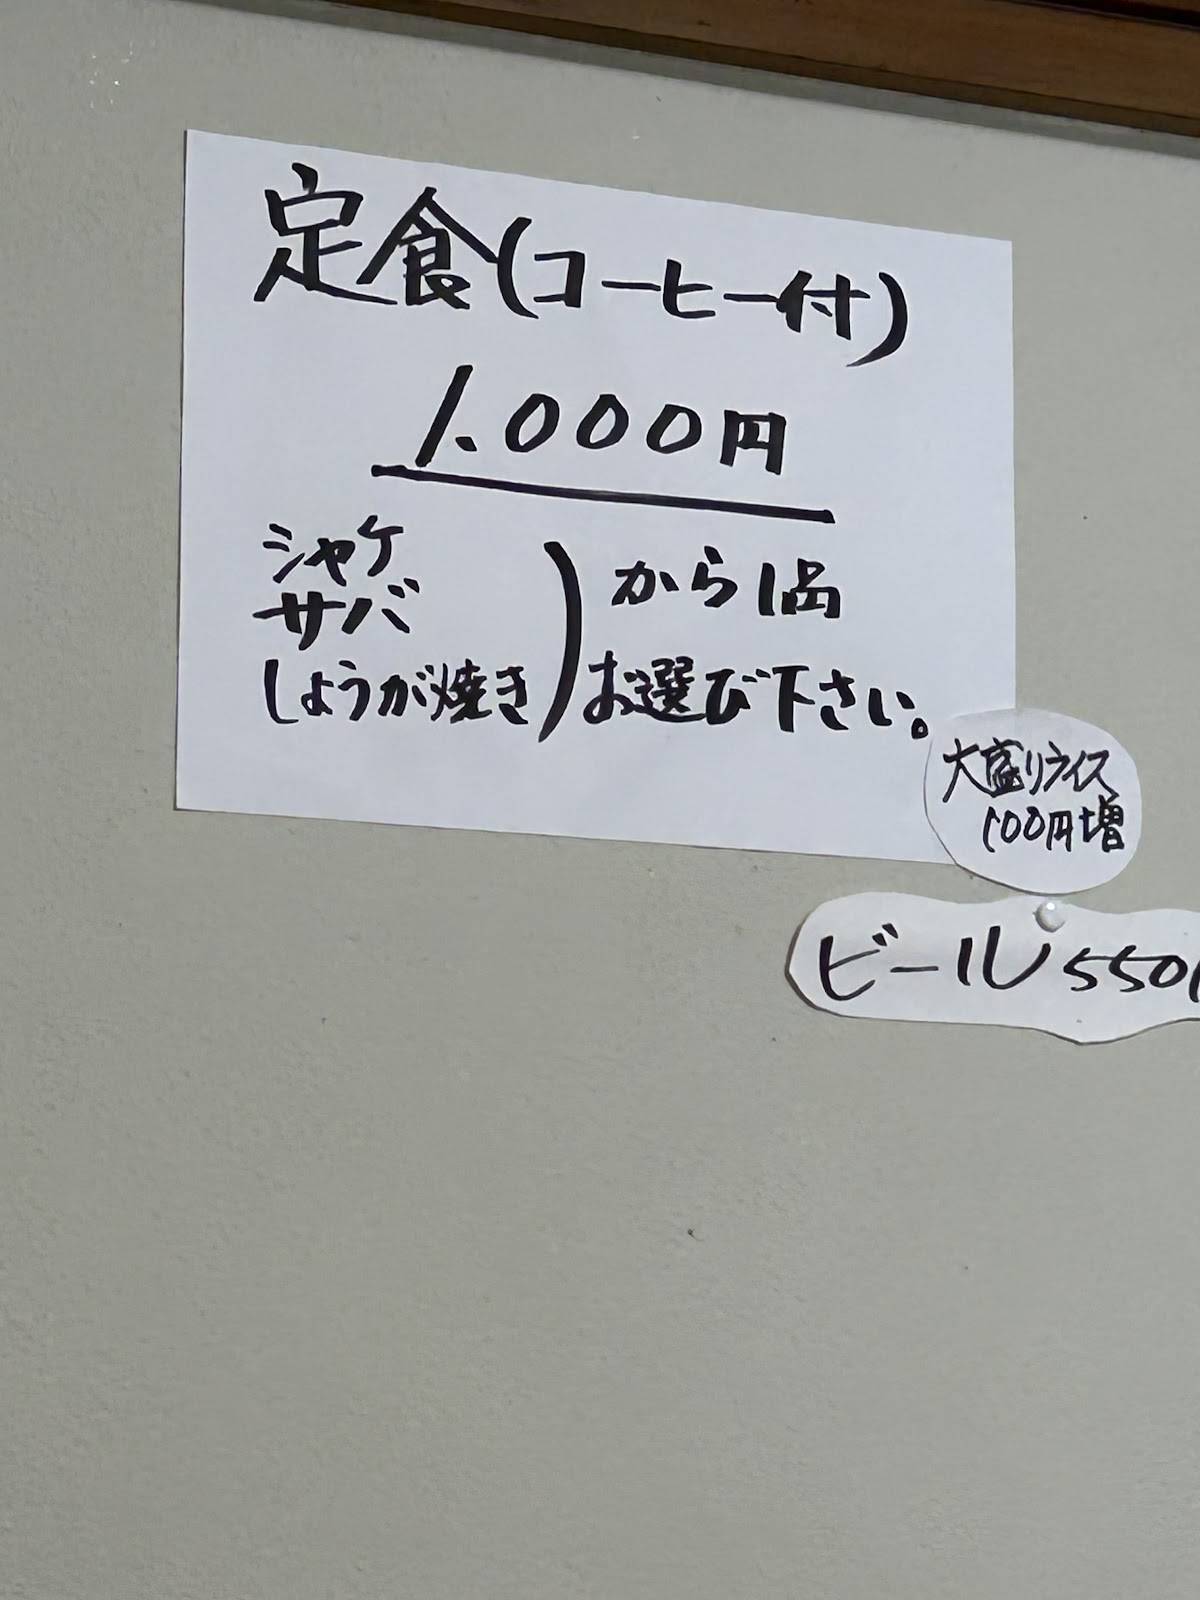 定食(コーヒー付)
1.000円
シャケ
サバ
しょうが焼き
から1品
お選び下さい。
大盛りライス
100円増
ビール550